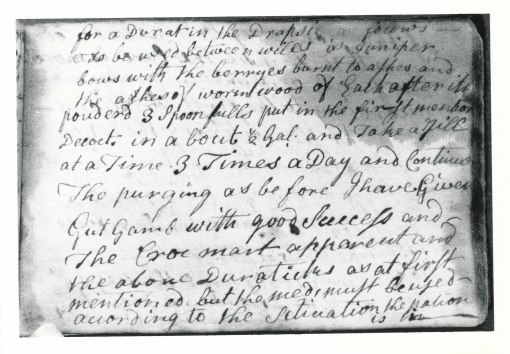 for a Durat in the Drapsi a fowrs
as be used between wiles is Juniper
bows with the berryes burnt to ashes and
the ashes of wormwood of Each after its
pouderd 3 Spoonfulls put in the first mention
Decocts in about ½ Gal. and Take a Jill
at a Time 3 Times a Day and Continue
The purging as before I have Given
Gut Gamb with good Success and
The Croc mart apparent and
the above Duraticks as at first
mentioned but the meds must be used
according to the Situation the pation
is in